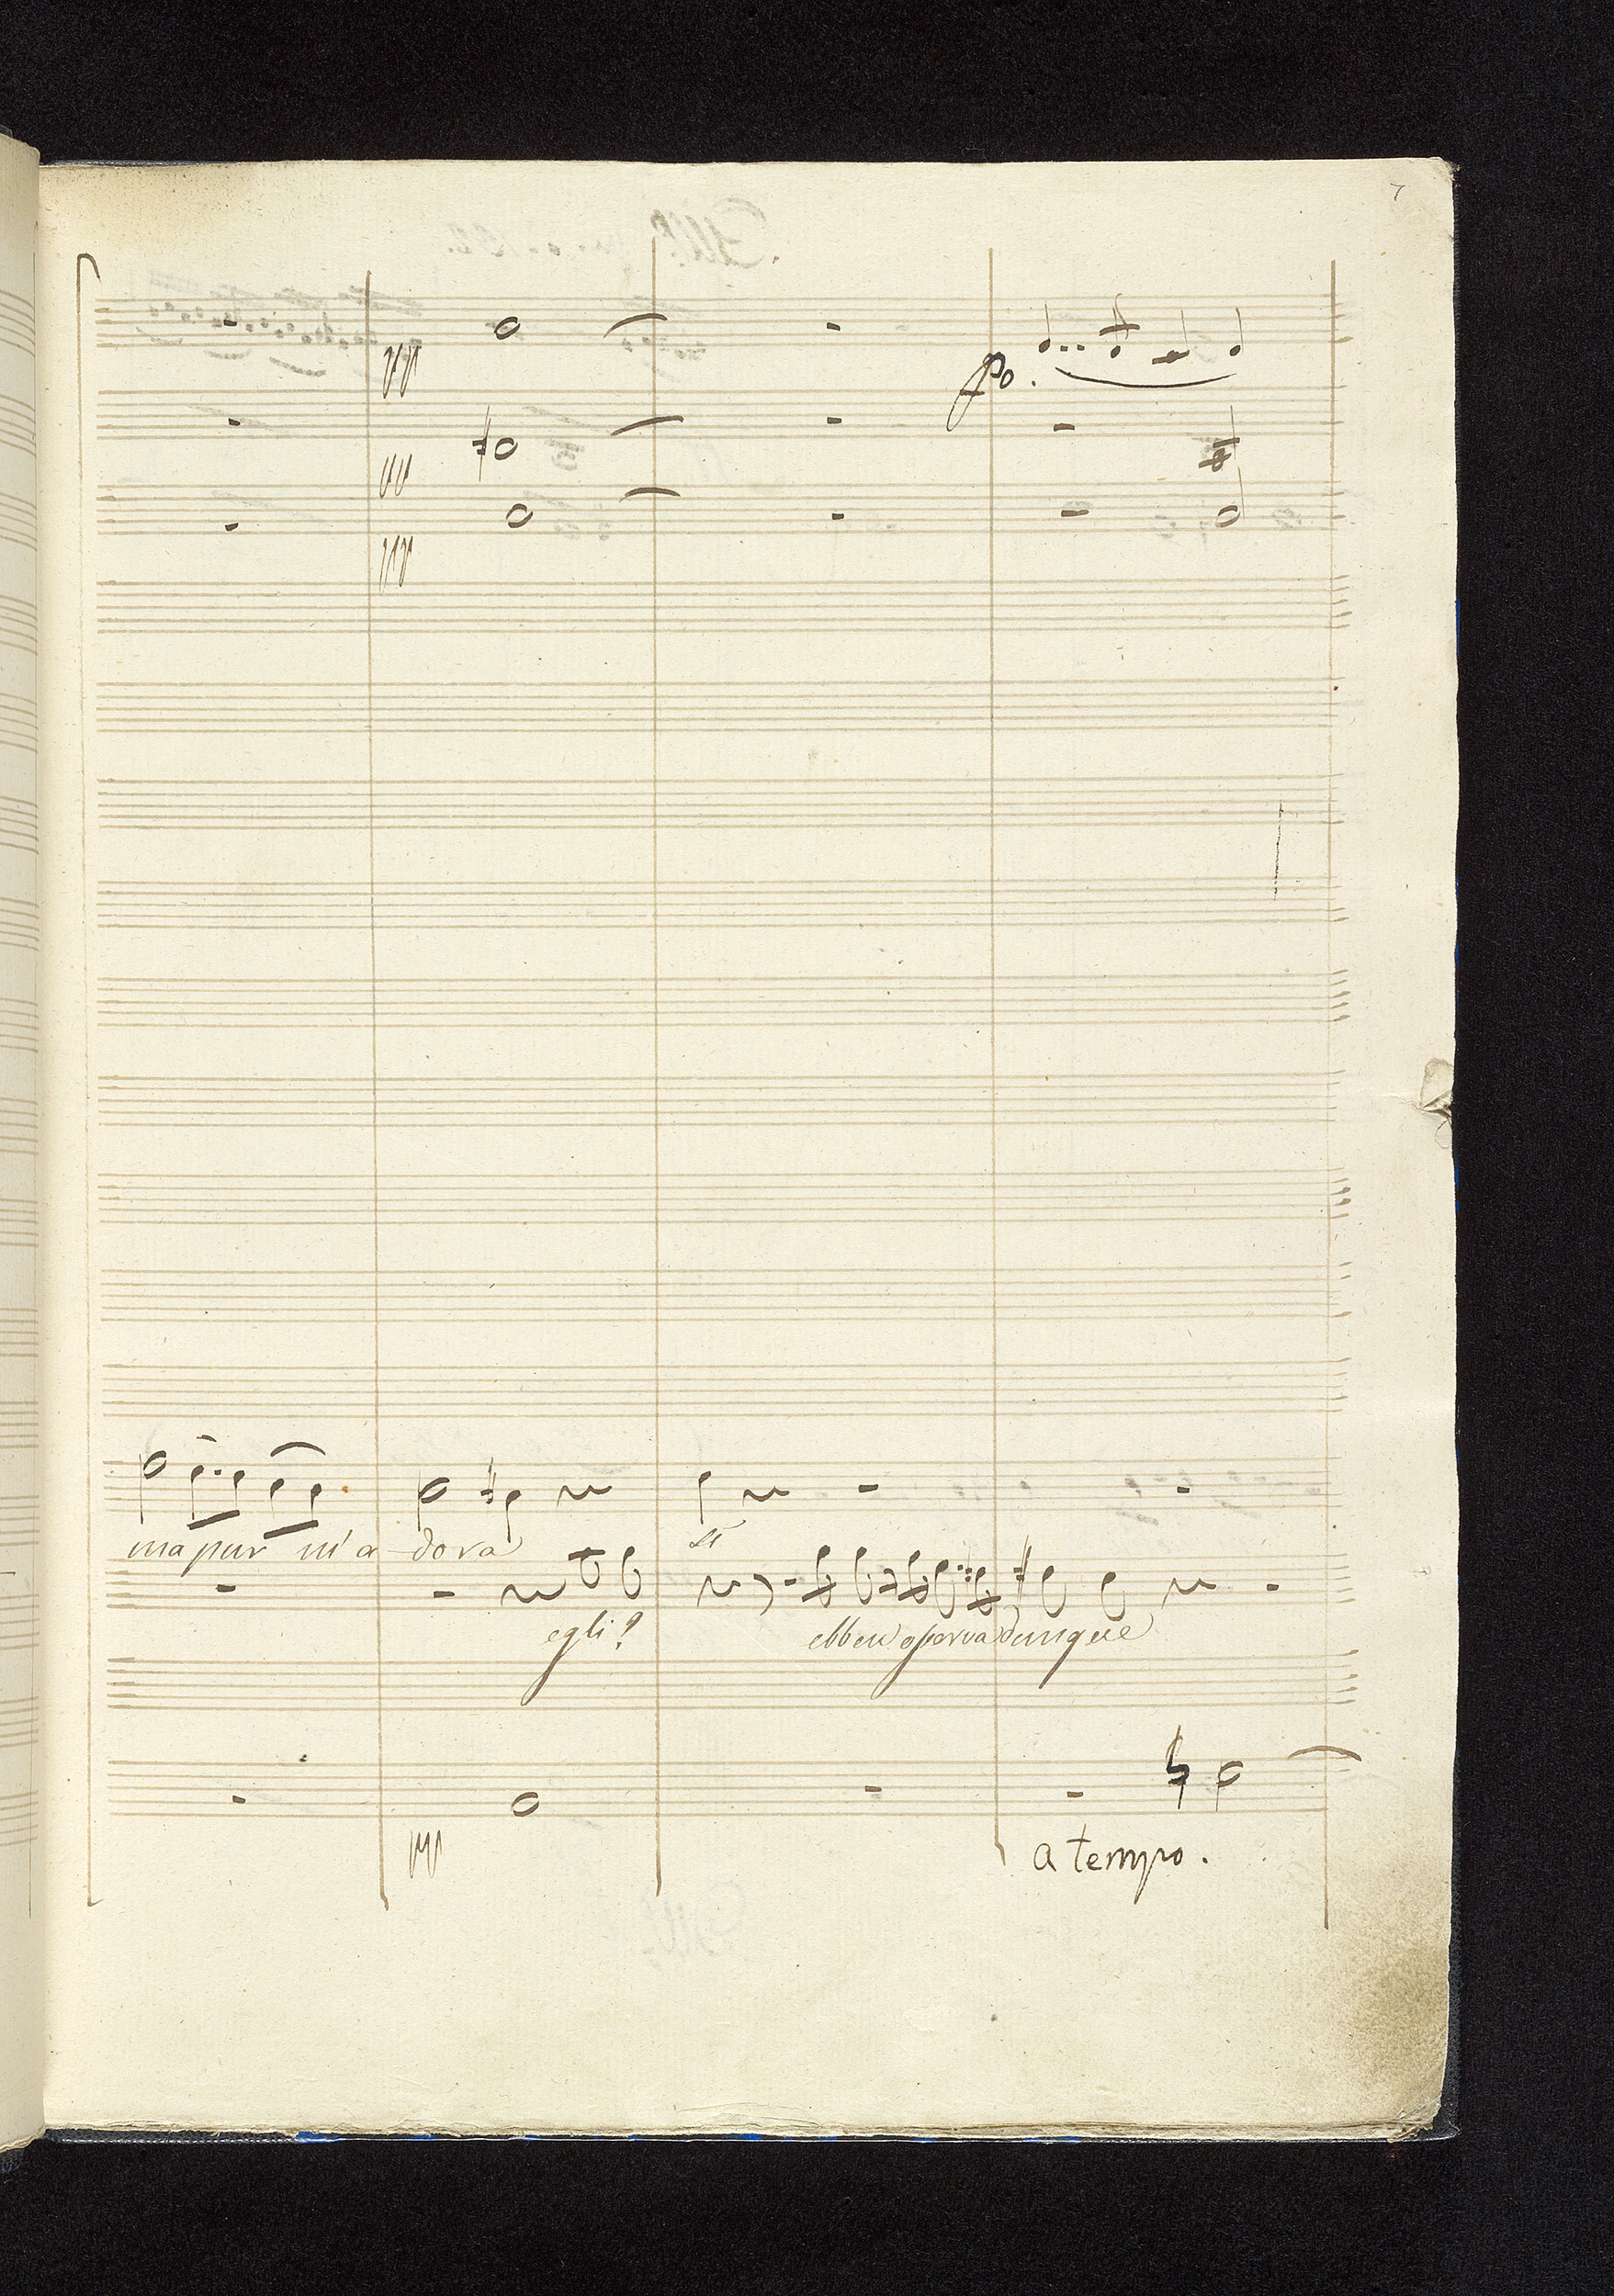 7
pp
po.
pp
pp
ma pur m'a - dora si
egli? ebben osserva dunque
pp
a tempo.